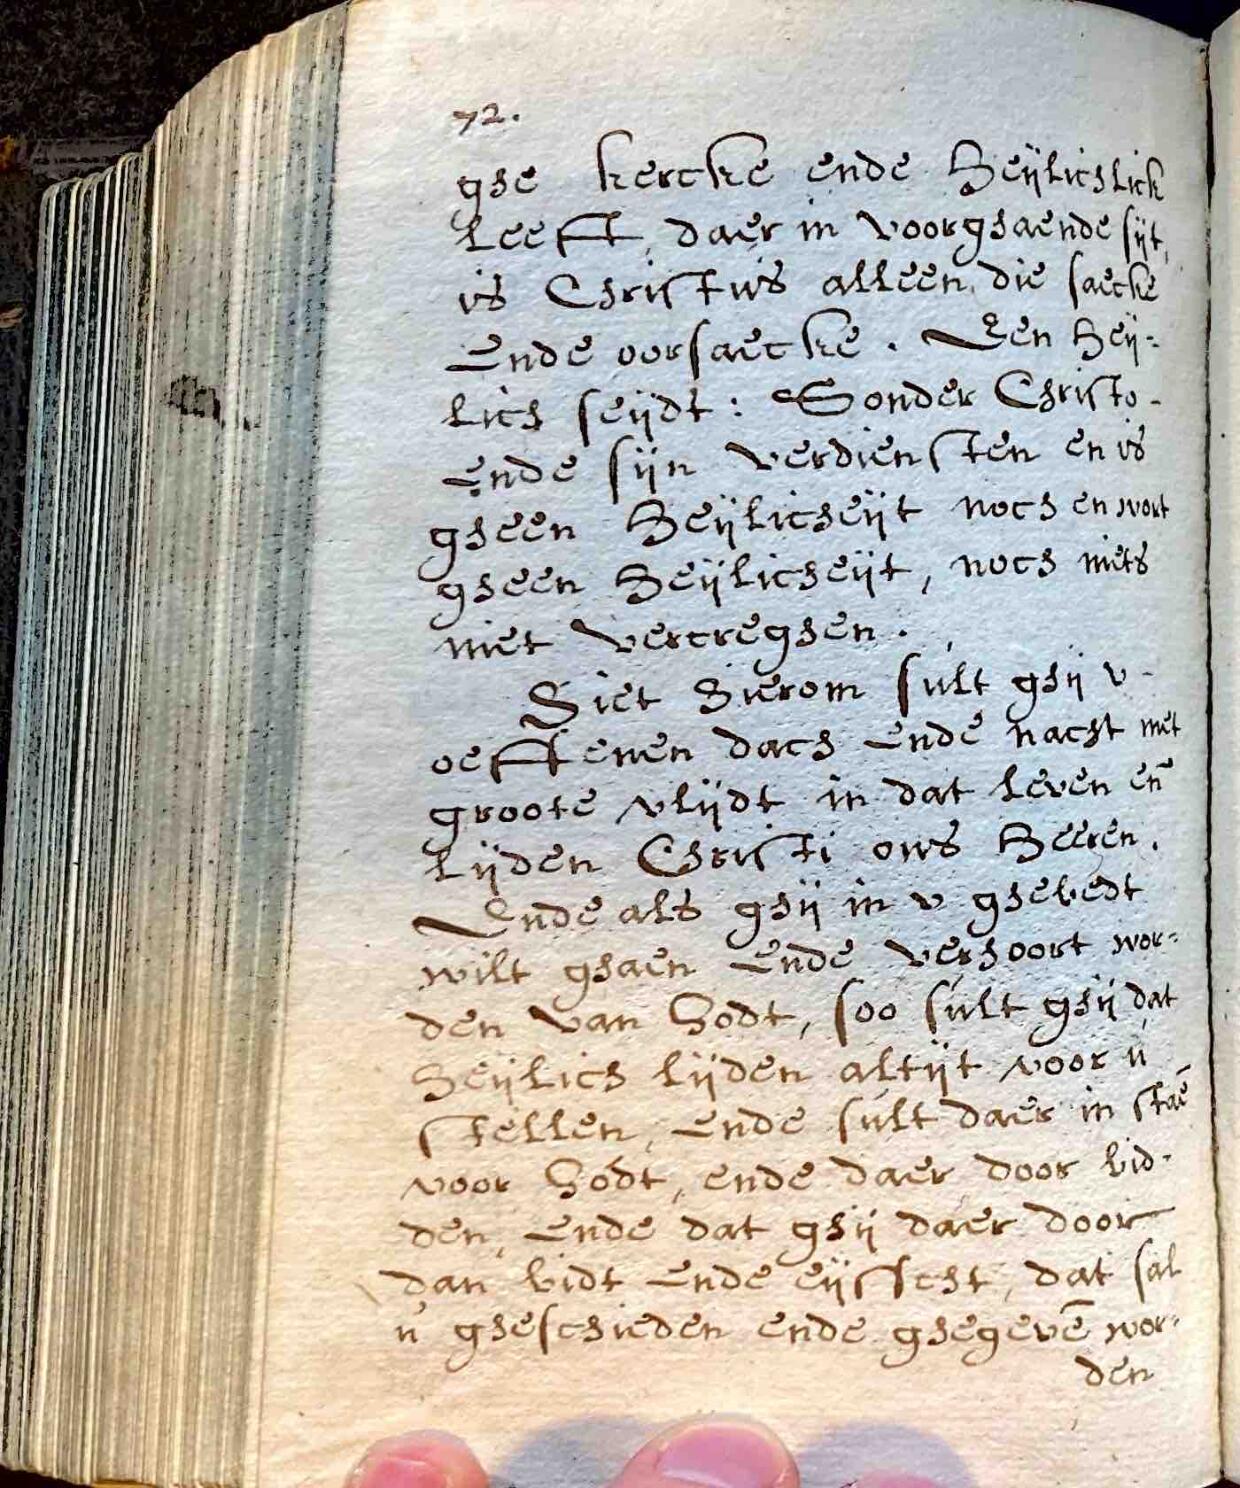 72.
ghe kercke ende Heijlichlick
Leefft, daer in voorghaende sijt,
is Christus alleen die saecke
Ende oorsaecke. Een Heij=
lich seijdt: Sonder Christo
Ende sijn verdiensten en is
gheen Heijlicheijt noch en wort
gheen Heijlicheijt, noch niets
niet vercreghen.
Siet hierom sult ghij v
oeffenen dach Ende nacht met
groote vlijdt in dat leven en̄
lijden Christi ons Heeren.
Ende als ghij in v ghebedt
wilt ghaen Ende verhoort wor=
den van Godt, soo sult ghij dat
Heijlich lijden altijt voor u
stellen, Ende sult daer in staē
voor Godt, ende daer door bid-
den, Ende dat ghij daer door
dan bidt Ende eijsscht, dat sal
u gheschieden ende ghegevē wor=
den